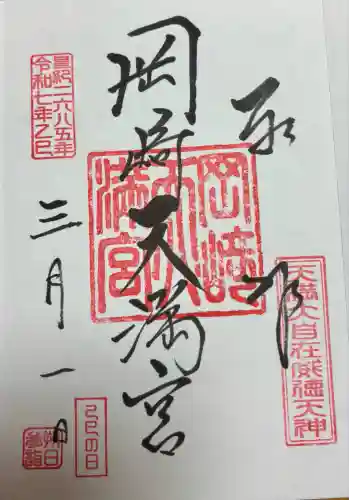 奉拝
天満大自在威徳天神
岡崎天満宮
岡崎天満宮
皇紀二六八五年
令和七年乙巳
三月一日
己巳の日
朔日参詣